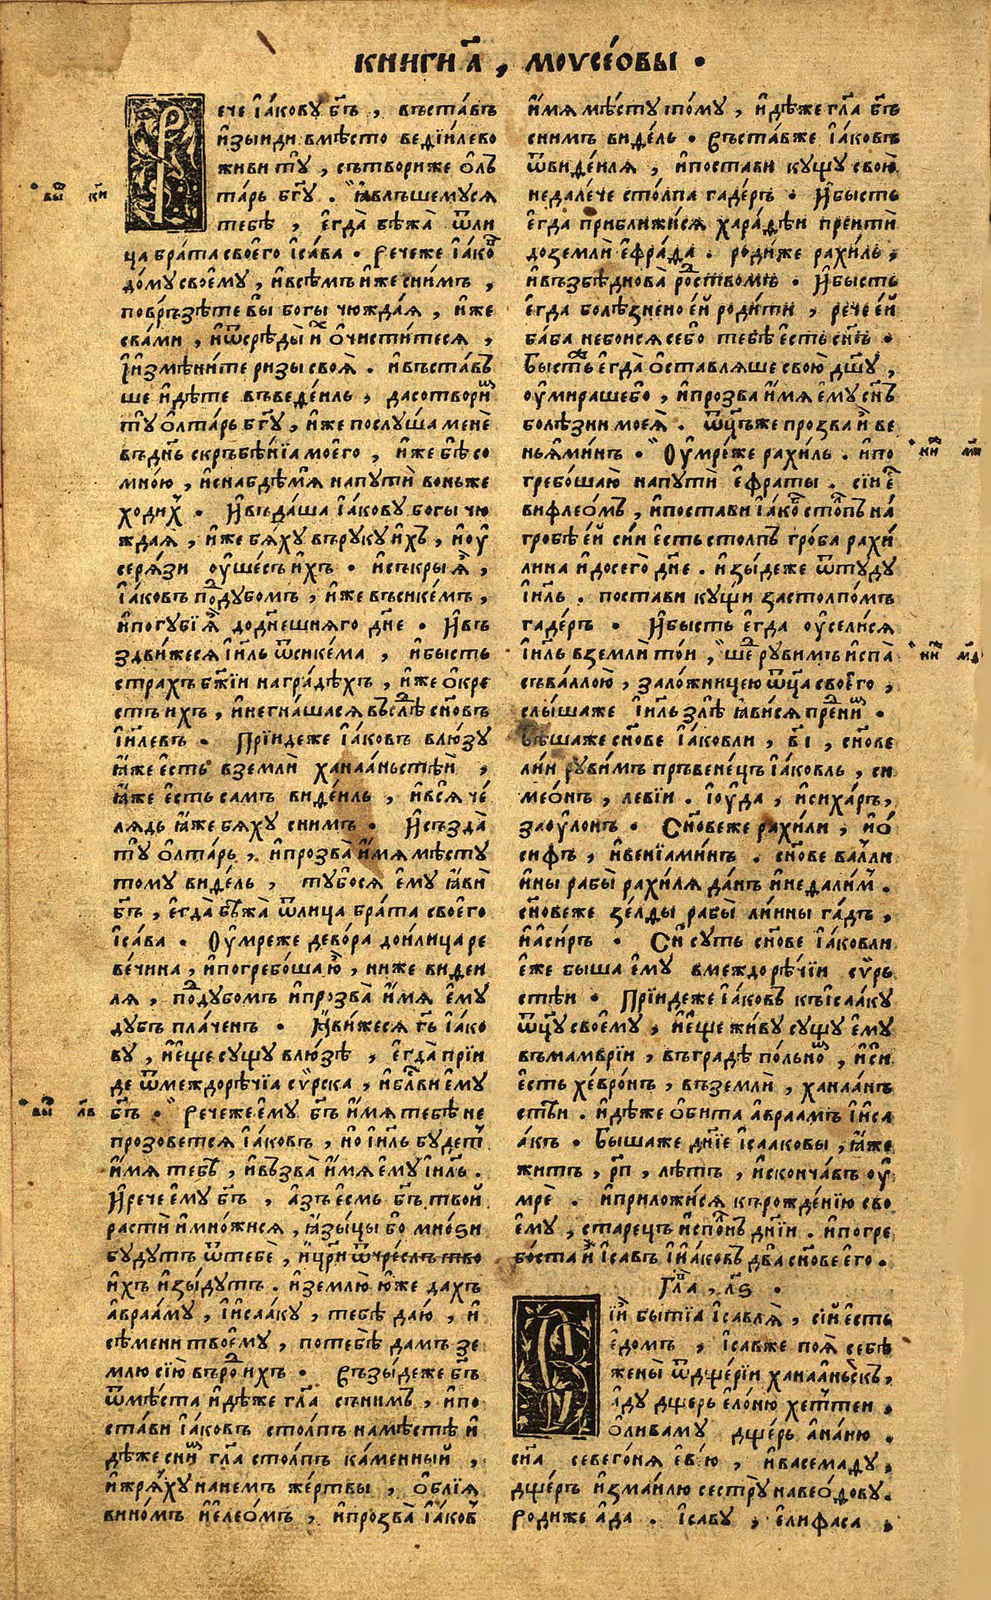 книги а҃ , моусе́овы .
Рече і҆а́кову бг҃ъ , въста́въ
и҆зыиди вмѣсто веѳіи́лево
живи тꙋ̀ , сътвориже о҆лъ
та́рь бг҃ꙋ . ꙗ҆́вльшемуся
тебѣ̀ , е҆гда̀ бѣжа̀ ѿли
ца бра́та своего̀ і҆са́ва . Рече́же і҆а́ковъ
до́му своемꙋ , и҆всѣ́мъ и҆́же сни́мъ ,
повръзѣте вы̀ богы̀ чюжда́я , и҆́же
сва́ми , и҆ѿсреды̀ и҆хъ ѡ҆чи́ститеся ,
и҆измѣни́те ризы своя̀ . и҆въста́въ
ше и҆дѣте въведе́иль , дасотвори́мъ
тꙋ̀ о҆лта́рь бг҃ꙋ , и҆́же послуша менѐ
въдн҃ь скръбѣ́нїа моего̀ , и҆́же бѣ̀ со
мно́ю , и҆снабдѣ́мя напутѝ воньже
ходи́хъ . И҆вда́ша і҆а́кову богы чю
жда́я , и҆́же бя́ху въруку и҆́хъ , и҆оу
серя́зи оу҆ше́съ и҆́хъ . и҆съкры̀ я҆̀ ,
і҆а́ковъ по́дубомъ , и҆́же въсике́мѣ ,
и҆погубѝ я҆̀ дод́нешняго дн҃е . И҆въ
здви́жеся і҆и҃ль ѿсике́ма , и҆бы́сть
стра́хъ бж҃іи награ́дѣхъ , и҆́же о҆кре
стъ и҆хъ , и҆негна́шася въслѣ́дъ сн҃овъ
і҆и҃левъ . Прїи́деже і҆а́ковъ влю́зꙋ
ꙗ҆́же е҆́сть вземлѝ ханаа́ньстѣи ,
ꙗ҆́же е҆́сть самъ виде́иль , и҆вся̀ че́
лядь ꙗ҆́же бя́ху сни́мъ . И҆създа̀
тꙋ̀ о҆лта́рь , и҆прозва̀ и҆́мя мѣ́стꙋ
томꙋ виде́ль , ту́бося е҆мꙋ ꙗ҆вѝ
бг҃ъ , е҆гда̀ бѣжа̀ ѿлица бра́та своего
і҆са́ва . Оу҆мре́же дево́ра дои́лица ре
ве́чина , и҆погребо́ша ю҆̀ , ниже види
ля , по́дубомъ и҆прозва̀ и҆́мя е҆мꙋ
ду́бъ пла́чень . Ꙗ҆ви́жеся гь҃ і҆а́ко
вꙋ , и҆е҆ще су́щꙋ влю́зѣ , е҆гда̀ прїи
де ѿмеждорѣ́чїа су́рска , и҆бл҃ви е҆мꙋ
бг҃ъ . Рече́же е҆мꙋ бг҃ъ и҆́мя тебѣ̀ не
прозове́тся і҆а́ковъ , но і҆и҃ль бу́деть
и҆́мя тебѣ̀ , и҆възва̀ и҆́мя е҆мꙋ і҆и҃ль .
И҆рече е҆мꙋ бг҃ъ , а҆́зъ е҆́смь бг҃ъ тво́й
растѝ и҆мно́жися , ꙗ҆зы́цы бо мно́ѕи
бу́дутъ ѿтебѐ , и҆цр҃и ѿчре́слъ тво
и҆хъ и҆зы́дутъ . и҆землю ю҆́же дахъ
а҆враа́мꙋ , і҆и҆саа́кꙋ , тебѣ̀ даю̀ , и҆
сѣ́мени твоемꙋ , потебѣ̀ да́мъ зе
млю сїю̀ въро́дъ и҆хъ . Взы́деже бг҃ъ
ѿмѣ́ста и҆дѣ́же гл҃а сънимъ , и҆по
ста́ви і҆а́ковъ сто́лпъ намѣ́стѣ и҆
дѣ́же сни́мъ гл҃а сто́лпъ ка́менный ,
и҆жря́хꙋ нане́мъ же́ртвы , о҆блїя̀
вино́мъ и҆е҆ле́омъ , и҆прозва̀ і҆а́ковъ
и҆́мя мѣ́стꙋ томꙋ , и҆дѣ́же гл҃а бг҃ъ
сни́мъ виде́ль . Въста́вже і҆а́ковъ
ѿвиде́иля , и҆поста́ви кущꙋ свою̀
недалече столпа гаде́ръ . И҆бы́сть
е҆гда̀ приближи́ся хара́дѣи пре́ити
доземлѝ е҆фра́да . роди́же рахи́ль ,
и҆възбѣ́днова̀ ро́дствомъ . И҆бы́сть
е҆гда̀ болѣ́знено е҆́й роди́ти , рече е҆́й
ба́ба небо́йся себо тебѣ̀ е҆́сть сн҃ъ .
Бы́сть же е҆гда̀ о҆ставля́ше свою̀ дш҃ꙋ ,
оу҆мира́шебо , и҆прозва̀ и҆́мя е҆мꙋ сн҃ъ
болѣ́зни моея̀ . ѿц҃ъже прозва̀ и҆̀ ве
ньями́нъ . Оу҆мре́же рахи́ль . и҆по
гребо́ша ю҆̀ напутѝ е҆фра́ты . сїи е҆сть
вифлео́мъ , и҆поста́ви і҆а́ковъ сто́лпъ на́
гро́бѣ е҆́й сїи е҆́сть столпъ гро́ба рахи́
лина и҆досего̀ дн҃е . и҆зы́деже ѿтꙋдꙋ
і҆и҃ль . поста́ви ку́щи застолпо́мъ
гаде́ръ . И҆бы́сть е҆гда̀ оу҆сели́ся
і҆и҃ль вземлѝ то́и , ше́дъ руви́мъ и҆спа̀
съва́ллою , зало́жницею ѿц҃а своего̀ ,
слы́шаже і҆и҃ль злѣ̀ ꙗ҆ви́ся пре́дни́мъ .
Бѣ́шаже сн҃ове і҆а́ковли , в҃і , сн҃ове
лїи́н руви́мъ пръвене́цъ і҆а́ковль , си
мео́нъ , леви́и . і҆оу҆́да , и҆сиха́ръ ,
заоу҆ло́нъ . Сн҃ове́же рахи́ли , і҆о́
сифъ , и҆венїами́нъ . сн҃ове ва́лли
ины рабы̀ рахи́ля да́нъ и҆недали́мъ .
сн҃ове́же зе́лды рабы̀ лїи́ны га́дъ ,
и҆а҆си́ръ . Сїи су́ть сн҃ове і҆а́ковли
е҆́же бы́ша е҆мꙋ вмеждорѣ́чїи су́рь
стѣи . Прїи́деже і҆а́ковъ къі҆саа́кꙋ
ѿц҃ꙋ своемꙋ , и҆е҆ще жи́вꙋ су́щꙋ е҆мꙋ
въмамврїи , въгра́дѣ по́льно , и҆сїи
е҆́сть хе́вронъ , въземлѝ , ханаа́нъ
стѣ́и . и҆дѣ́же о҆бита̀ а҆враа́мъ і҆и҆са
а҆́къ . Бы́шаже дн҃їе і҆саа́ковы , ꙗ҆́же
жи́тъ , рп҃ , лѣ́тъ , и҆сконча́въ оу҆́
мре . и҆приложи́ся къро́жденїю сво
емꙋ , ста́рецъ и҆спо́лнь дн҃їи . и҆погре
бо́ста и҆̀ і҆са́въ і҆и҆а́ковъ два̀ сн҃ове е҆го .
Гл҃а , лѕ҃ .
Сїи́ бытїа̀ і҆са́вля , сїи е҆́сть
е҆до́мъ , і҆са́вже поя̀ себѣ̀
жены̀ ѿдще́рїи ханаа́ньскъ ,
а҆́дꙋ дще́рь е҆ло́ню хе́ттеи .
о҆лива́мꙋ дще́рь а҆на́ню .
сн҃а севего́ня е҆ве́ю , и҆васема́дꙋ ,
дще́ръ и҆зма́илю сестрꙋ наве́одову .
Роди́же а҆да . і҆са́вꙋ , е҆лифа́са ,
вы҃ ки҃
вы҃ лв҃
ни҃
ни҃ мд҃